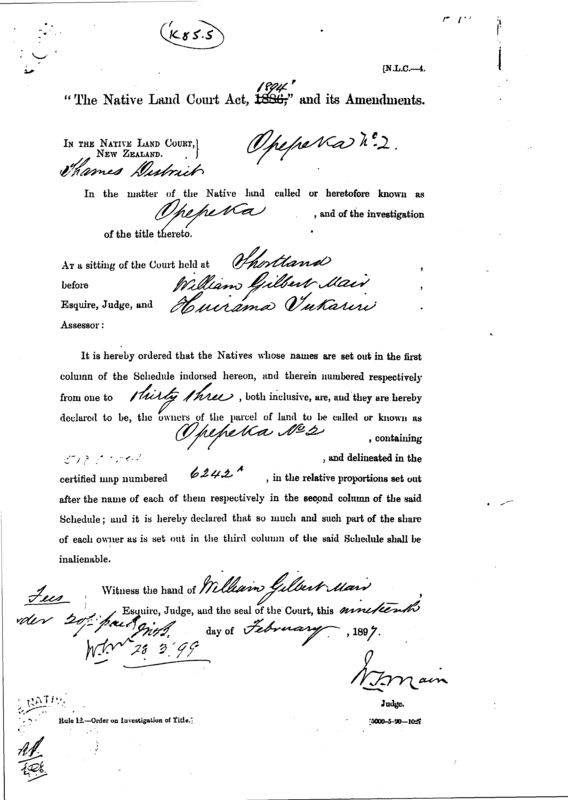 K 85.5
[N.L.C.—4.
1894
"The Native Land Court Act, 1886," and its Amendments.
IN THE NATIVE LAND COURT, }
NEW ZEALAND. }
Opepeka No 2.
Thames District
In the matter of the Native land called or heretofore known as
Opepeka , and of the investigation
of the title thereto.
AT a sitting of the Court held at Shortland ,
before William Gilbert Mair ,
Esquire, Judge, and
Assessor:
It is hereby ordered that the Natives whose names are set out in the first
column of the Schedule indorsed hereon, and therein numbered respectively
from one to thirty three , both inclusive, are, and they are hereby
declared to be, the owners of the parcel of land to be called or known as
Opepeka No 2 , containing
, and delineated in the
certified map numbered 6242A , in the relative proportions set out
after the name of each of them respectively in the second column of the said
Schedule; and it is hereby declared that so much and such part of the share
of each owner as is set out in the third column of the said Schedule shall be
inalienable.
Witness the hand of William Gilbert Mair ,
Fees
Esquire, Judge, and the seal of the Court, this nineteenth
20/- paid
day of February , 1897.
28.3.99
W G Mair
Judge.
NATIV
Rule 12.—Order on Investigation of Title.]
[5000-5-90—1027